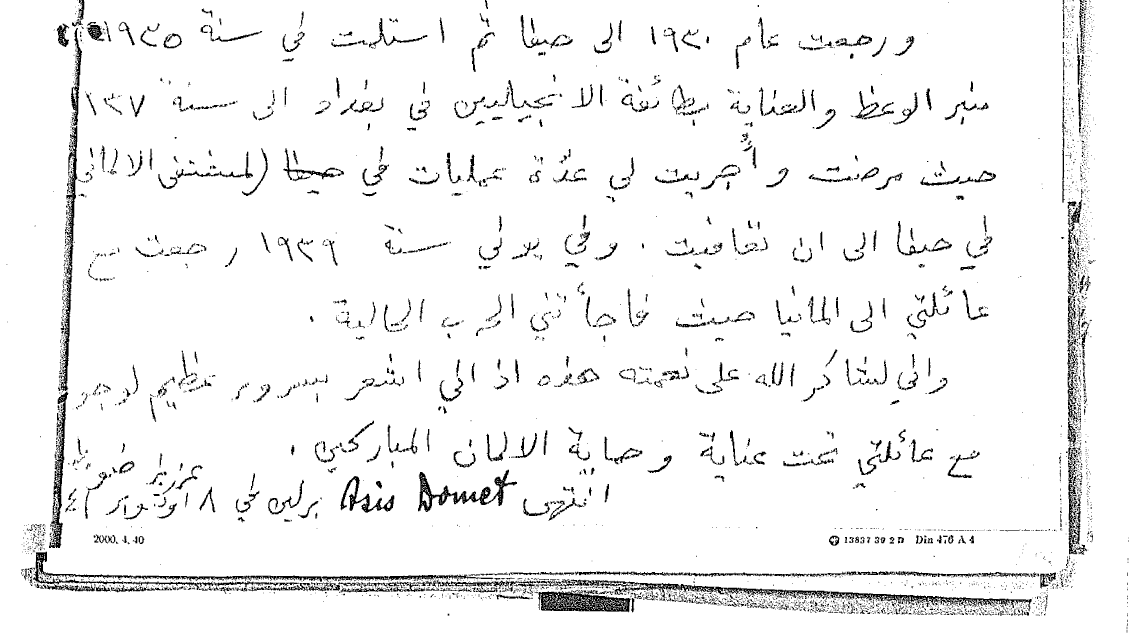 ورجعت عام ١٩٣٠ الى حيفا ثم استلمت في سنة ١٩٣٥
منبر الوعظ والعناية بطائفة الانجيليين في بغداد الى سنة ١٣٧
حيث مرضت وأُجريت لي عدّة عمليات في حيفا (لمستشفى الالماني
في حيفا الى ان تعافيت . وفي يولي سنة ١٩٣٩ رجعت مع
عائلتي الى المانيا حيث فاجأتني الحرب الحالية .
واني لشاكر الله على نعمته هذه اذ اني اشعر بسرور عظيم لوجو
مع عائلتي تحت عناية وحماية الالمان المباركين .
عزيز ضومط
انتهى Asis Domet برلين في ٨ اوكتوبر ٤
2000. 4. 40
13837 39 2 D Din 476 A 4